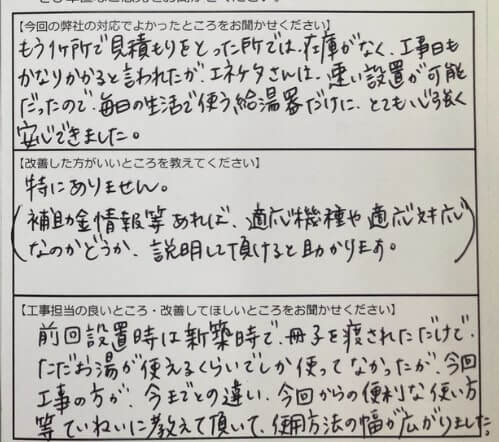 【今回の弊社の対応でよかったところをお聞かせください】
もう1ヶ所で見積もりをとった所では、在庫がなく、工事日も
かなりかかると言われたが、エネケタさんは、速い設置が可能
だったので、毎日の生活で使う給湯器だけに、とても心強く
安心できました。
【改善した方がいいところを教えてください】
特にありません。
(補助金情報等あれば、適応機種や適応対応
なのかどうか、説明して頂けると助かります。)
【工事担当の良いところ・改善してほしいところをお聞かせください】
前回設置時は新築時で、冊子を渡されただけで、
ただお湯が使えるくらいでしか使ってなかったが、今回
工事の方が、今までとの違い、今回からの便利な使い方
等ていねいに教えて頂いて、使用方法の幅が広がりました。